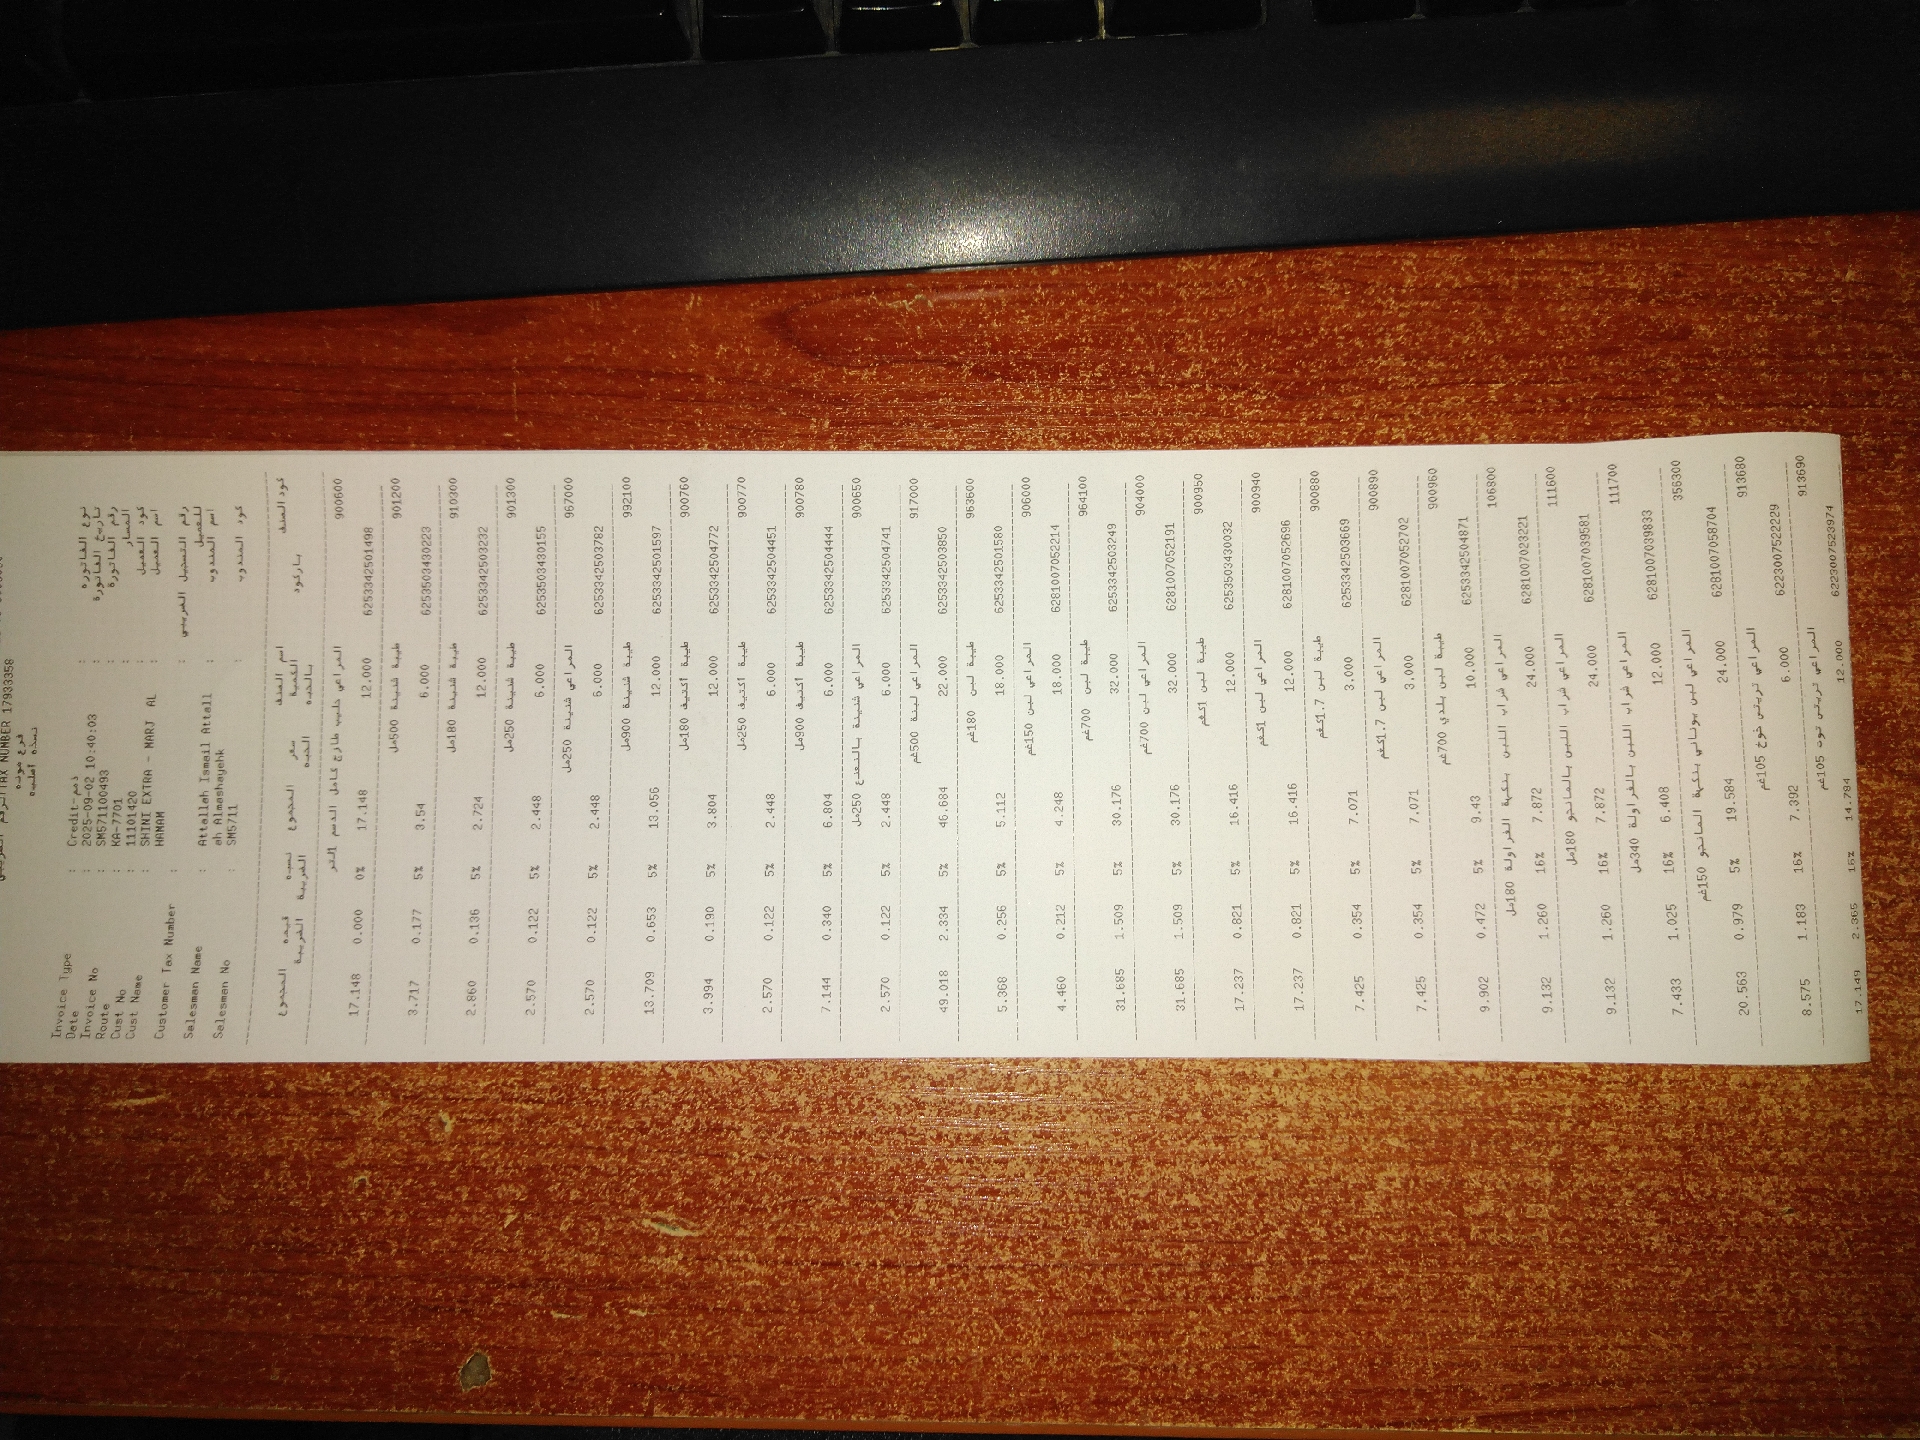 TAX NUMBER 179333358
فرع مؤته
نسخة اصلية
Invoice Type : Credit-ذمم : نوع الفاتورة
Date : 2025-09-02 10:40:03 : تاريخ الفاتورة
Invoice No : SM571100493 : رقم الفاتورة
Route : KA-7701 : المسار
Cust No : 11101420 : كود العميل
Cust Name : SHINI EXTRA - MARJ AL : اسم العميل
HAMAM
Customer Tax Number : : رقم التسجيل الضريبي للعميل
Salesman Name : Attallah Ismail Attall : اسم المندوب
ah Almashayehk
Salesman No : SM5711 : كود المندوب
المجموع قيمة الضريبة نسبة الضريبة المجموع سعر الحبه اسم الصنف الكمية بالحبه باركود كود الصنف
المراعي حليب طازج كامل الدسم 900600
17.148 0.000 0% 17.148 12.000 6253342501498
طيبة شنينة 500مل 901200
3.717 0.177 5% 3.54 6.000 6253503430223
طيبة شنينة 180مل 910300
2.860 0.136 5% 2.724 12.000 6253342503232
طيبة شنينة 250مل 901300
2.570 0.122 5% 2.448 6.000 6253503430155
المراعي شنينة 250مل 967000
2.570 0.122 5% 2.448 6.000 6253342503782
طيبة شنينة 900مل 992100
13.709 0.653 5% 13.056 12.000 6253342501597
طيبة اكتيف 180مل 900760
3.994 0.190 5% 3.804 12.000 6253342504772
طيبة اكتيف 250مل 900770
2.570 0.122 5% 2.448 6.000 6253342504451
طيبة اكتيف 900مل 900780
7.144 0.340 5% 6.804 6.000 6253342504444
المراعي شنينة بالنعنع 250مل 900650
2.570 0.122 5% 2.448 6.000 6253342504741
المراعي لبنة 500غم 917000
49.018 2.334 5% 46.684 22.000 6253342503850
طيبة لبن 180غم 963600
5.368 0.256 5% 5.112 18.000 6253342501580
المراعي لبن 150غم 906000
4.460 0.212 5% 4.248 18.000 6281007052214
طيبة لبن 700غم 964100
31.685 1.509 5% 30.176 32.000 6253342503249
المراعي لبن 700غم 904000
31.685 1.509 5% 30.176 32.000 6281007052191
طيبة لبن 1كغم 900950
17.237 0.821 5% 16.416 12.000 6253503430032
المراعي لبن 1كغم 900940
17.237 0.821 5% 16.416 12.000 6281007052696
طيبة لبن 1.7كغم 900880
7.425 0.354 5% 7.071 3.000 6253342503669
المراعي لبن 1.7كغم 900890
7.425 0.354 5% 7.071 3.000 6281007052702
طيبة لبن بلدي 700غم 900960
9.902 0.472 5% 9.43 10.000 6253342504871
المراعي شراب اللبن بنكهة الفراولة 180مل 106300
9.132 1.260 16% 7.872 24.000 6281007023221
المراعي شراب اللبن بالمانجو 180مل 111600
9.132 1.260 16% 7.872 24.000 6281007039581
المراعي شراب اللبن بالفراولة 340مل 111700
7.433 1.025 16% 6.408 12.000 6281007039833
المراعي لبن يوناني بنكهة المانجو 150غم 356300
20.563 0.979 5% 19.584 24.000 6281007058704
المراعي تريتس خوخ 105غم 913680
8.575 1.183 16% 7.392 6.000 6223007522229
المراعي تريتس توت 105غم 913690
17.149 2.365 16% 14.784 12.000 6223007523974